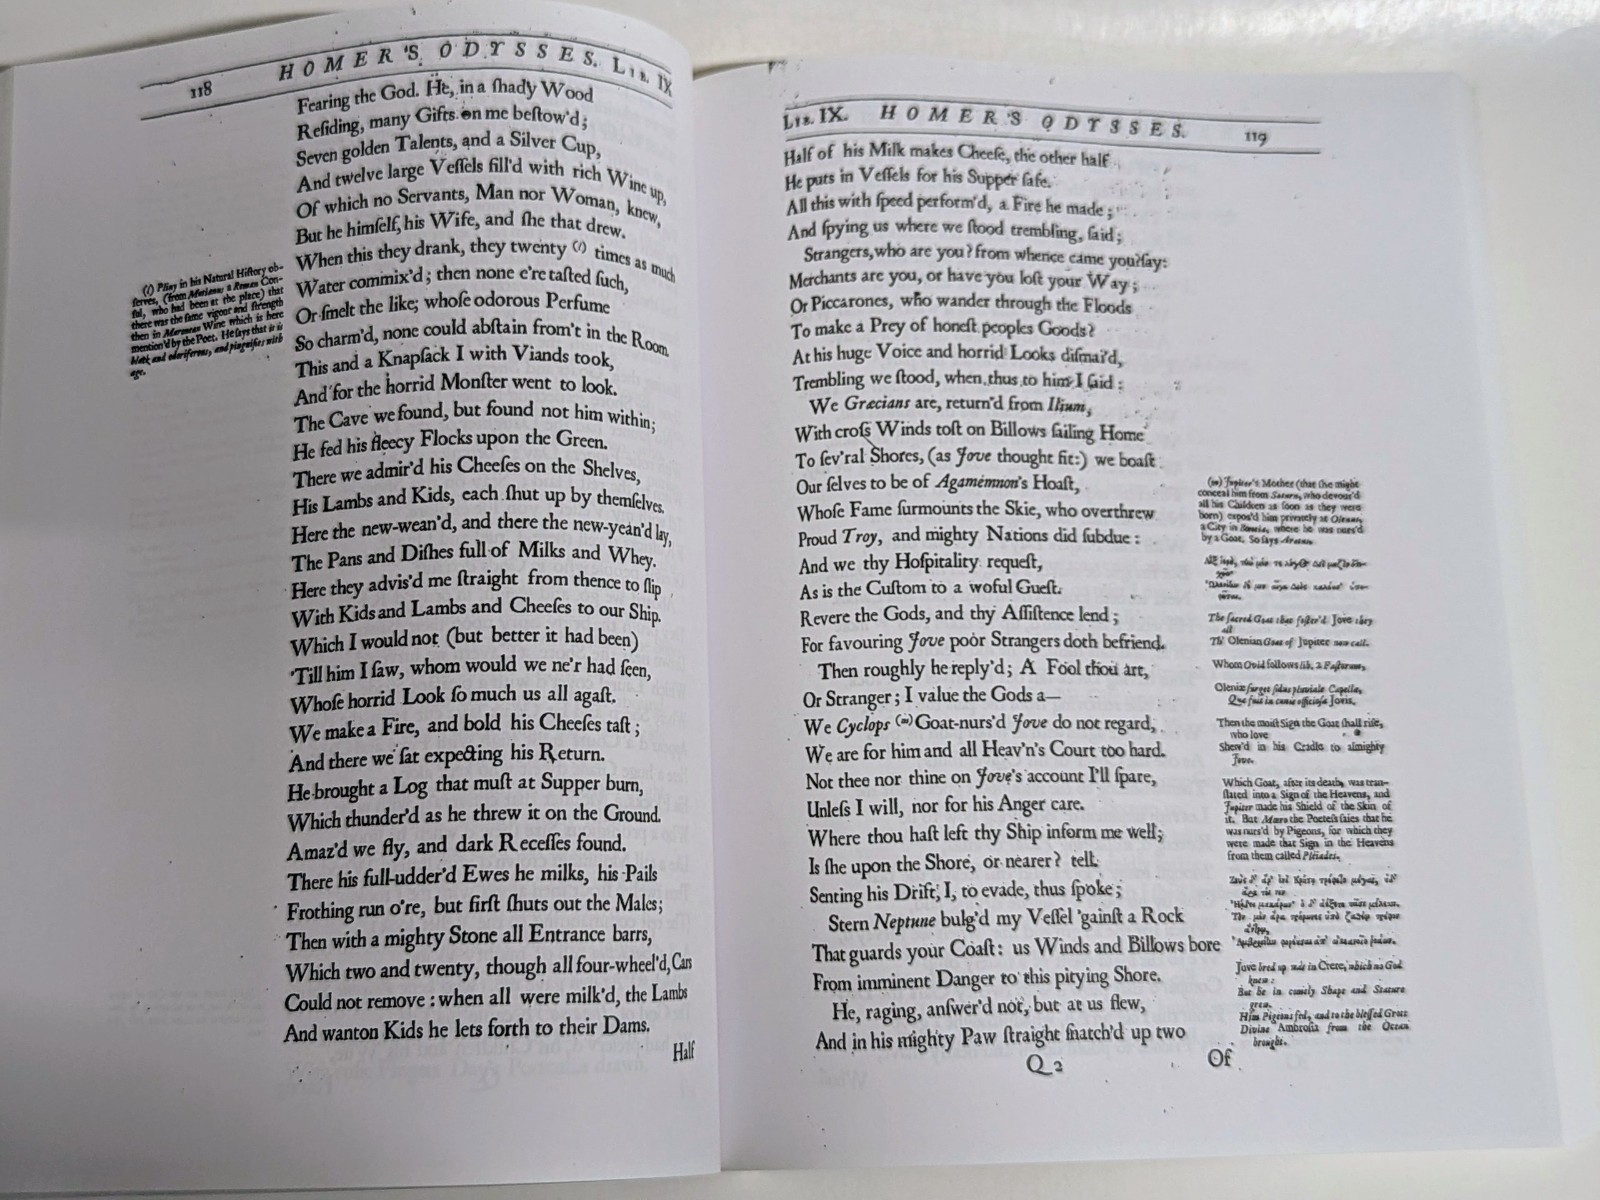 118 HOMER'S ODYSSES. LIB. IX
Fearing the God. He, in a ſhady Wood
Reſiding, many Gifts on me beſtow'd;
Seven golden Talents, and a Silver Cup,
And twelve large Veſſels fill'd with rich Wine up,
Of which no Servants, Man nor Woman, knew,
But he himſelf, his Wife, and ſhe that drew.
When this they drank, they twenty (l) times as much
Water commix'd; then none e're taſted ſuch,
Or ſmelt the like; whoſe odorous Perfume
So charm'd, none could abſtain from't in the Room
This and a Knapſack I with Viands took,
And for the horrid Monſter went to look.
The Cave we found, but found not him within;
He fed his fleecy Flocks upon the Green.
There we admir'd his Cheeſes on the Shelves,
His Lambs and Kids, each ſhut up by themſelves.
Here the new-wean'd, and there the new-yean'd lay,
The Pans and Diſhes full of Milks and Whey.
Here they advis'd me ſtraight from thence to ſlip
With Kids and Lambs and Cheeſes to our Ship.
Which I would not (but better it had been)
'Till him I ſaw, whom would we ne'r had ſeen,
Whoſe horrid Look ſo much us all agaſt.
We make a Fire, and bold his Cheeſes taſt;
And there we ſat expecting his Return.
He brought a Log that muſt at Supper burn,
Which thunder'd as he threw it on the Ground.
Amaz'd we fly, and dark Receſſes found.
There his full-udder'd Ewes he milks, his Pails
Frothing run o're, but firſt ſhuts out the Males;
Then with a mighty Stone all Entrance barrs,
Which two and twenty, though all four-wheel'd, Cars
Could not remove: when all were milk'd, the Lambs
And wanton Kids he lets forth to their Dams.
Half
(l) Pliny in his Natural Hiſtory ob-
ſerves, (from Mutianus a Roman Con-
ſul, who had been at the place) that
there was the ſame vigour and ſtrength
then in Maronean Wine which is here
mention'd by the Poet. He ſays that it is
black and odoriferous, and pinguifies with
age.
LIB. IX. HOMER'S ODYSSES. 119
Half of his Milk makes Cheeſe, the other half
He puts in Veſſels for his Supper ſafe.
All this with ſpeed perform'd, a Fire he made;
And ſpying us where we ſtood trembling, ſaid;
Strangers, who are you? from whence came you? ſay:
Merchants are you, or have you loſt your Way;
Or Piccarones, who wander through the Floods
To make a Prey of honeſt peoples Goods?
At his huge Voice and horrid Looks diſmai'd,
Trembling we ſtood, when thus to him I ſaid:
We Græcians are, return'd from Ilium,
With croſs Winds toſt on Billows ſailing Home
To ſev'ral Shores, (as Jove thought fit:) we boaſt
Our ſelves to be of Agamemnon's Hoaſt,
Whoſe Fame ſurmounts the Skie, who overthrew
Proud Troy, and mighty Nations did ſubdue:
And we thy Hoſpitality requeſt,
As is the Cuſtom to a woful Gueſt.
Revere the Gods, and thy Aſſiſtence lend;
For favouring Jove poor Strangers doth befriend.
Then roughly he reply'd; A Fool thou art,
Or Stranger; I value the Gods a—
We Cyclops (m) Goat-nurs'd Jove do not regard,
We are for him and all Heav'n's Court too hard.
Not thee nor thine on Jove's account I'll ſpare,
Unleſs I will, nor for his Anger care.
Where thou haſt left thy Ship inform me well;
Is ſhe upon the Shore, or nearer? tell.
Senting his Drift, I, to evade, thus ſpoke;
Stern Neptune bulg'd my Veſſel 'gainſt a Rock
That guards your Coaſt: us Winds and Billows bore
From imminent Danger to this pitying Shore.
He, raging, anſwer'd not, but at us flew,
And in his mighty Paw ſtraight ſnatch'd up two
Q 2 Of
(m) Jupiter's Mother (that ſhe might
conceal him from Saturn, who devour'd
all his Children as ſoon as they were
born) expos'd him privately at Olenus,
a City in where he was nurs'd
by a Goat. So ſays Aratus.
The ſacred Goat that foſter'd Jove they
all
Th' Olenian Goat of Jupiter now call.
Whom Ovid follows lib. 2 Faſtorum,
Oleniæ ſurget ſidus pluviale Capellæ,
Quæ fuit in cunis officioſa Jovis.
Then the moiſt Sign the Goat ſhall riſe,
who love
Shew'd in his Cradle to almighty
Jove.
Which Goat, after its death, was tran-
ſlated into a Sign of the Heavens, and
Jupiter made his Shield of the Skin of
it. But Mœro the Poeteſs ſaies that he
was nurs'd by Pigeons, for which they
were made that Sign in the Heavens
from them called Pleiades.
Jove bred up was in Crete, which no God
knew:
But he in comely Shape and Stature
grew.
Him Pigeons fed, and to the bleſſed Grot
Divine Ambroſia from the Ocean
brought.